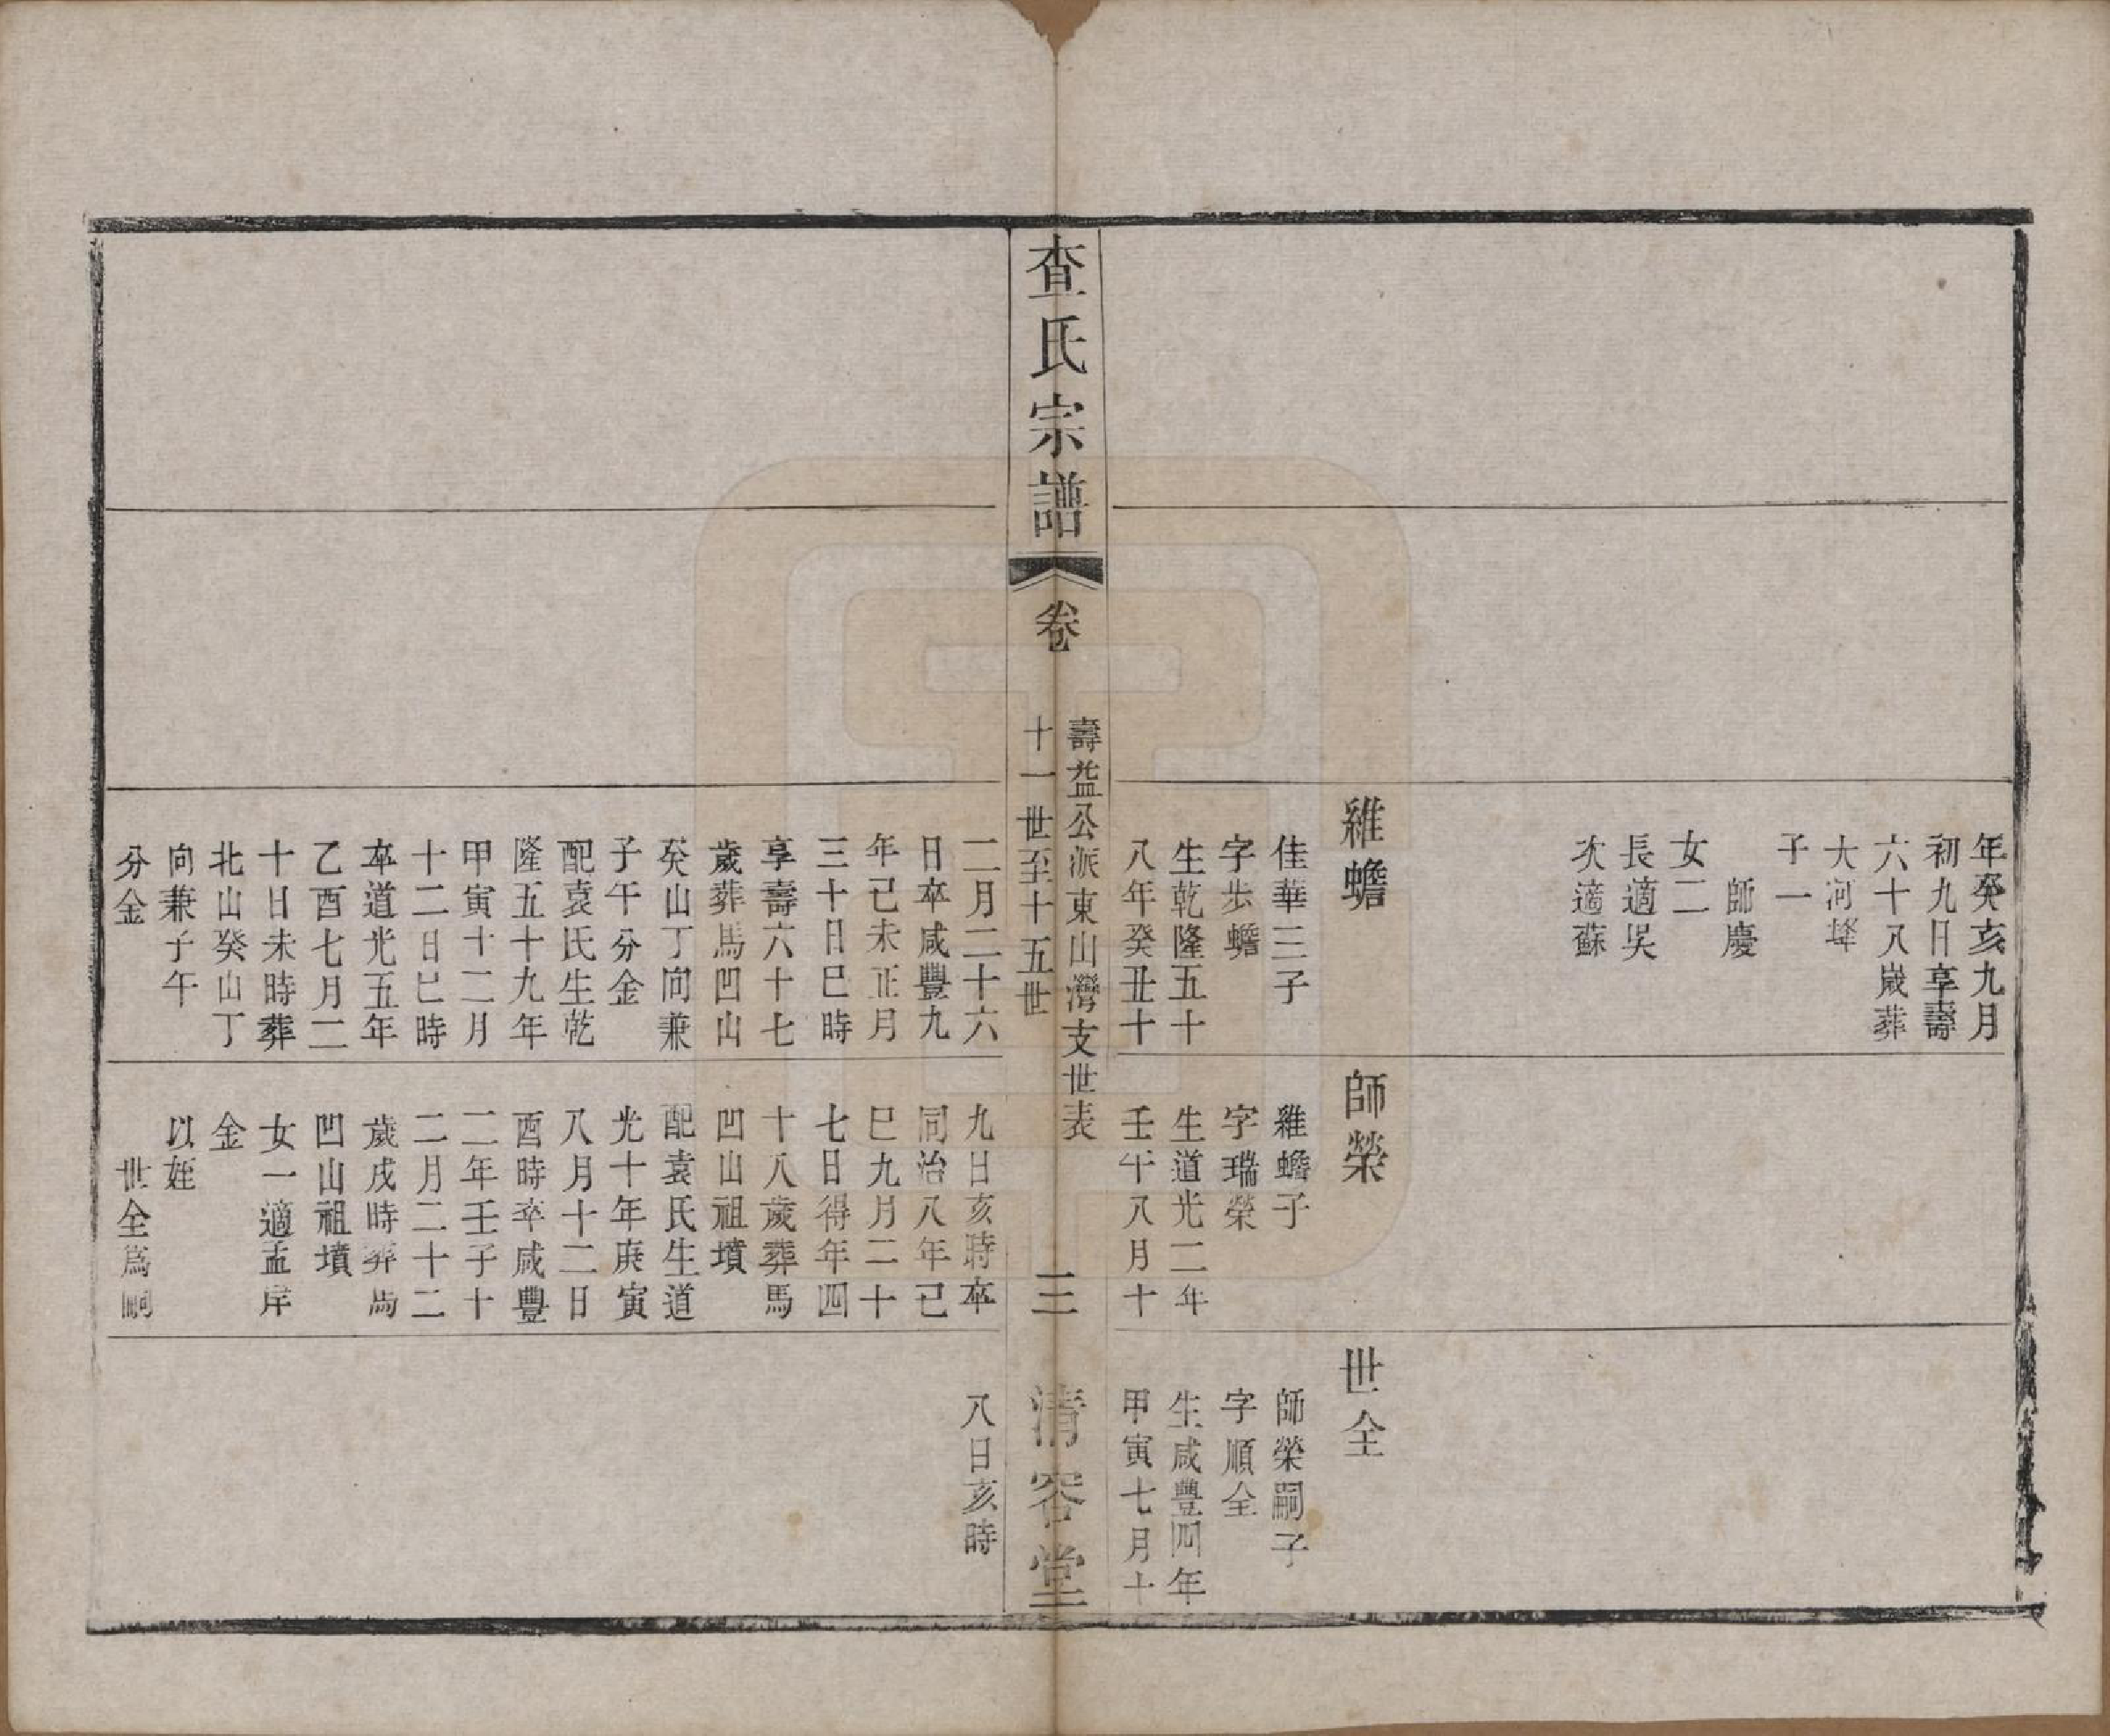 年癸亥九月
初九日享壽
六十八歲葬
大河墿
子一
師慶
女二
長適吳
次適蘇
雒蟾
佳華三子
字步蟾
生乾隆五十
八年癸丑十
師榮
雒蟾子
字瑞榮
生道光二年
壬午八月十
世全
師榮嗣子
字順全
生咸豐四年
甲寅七月十
查氏宗譜
卷
壽益公派東山灣支世表
十一世至十五世
三
清容堂
二月二十六
日卒咸豐九
年己未正月
三十日巳時
享壽六十七
歲葬馬凹山
癸山丁向兼
子午分金
配袁氏生乾
隆五十九年
甲寅十二月
十二日巳時
卒道光五年
乙酉七月二
十日未時葬
北山癸山丁
向兼子午
分金
九日亥時卒
同治八年己
巳九月二十
七日得年四
十八歲葬馬
凹山祖墳
配袁氏生道
光十年庚寅
八月十二日
酉時卒咸豐
二年壬子十
二月二十二
歲戌時葬馬
凹山祖墳
女一適孟岸
金
以姪
世全爲嗣
八日亥時